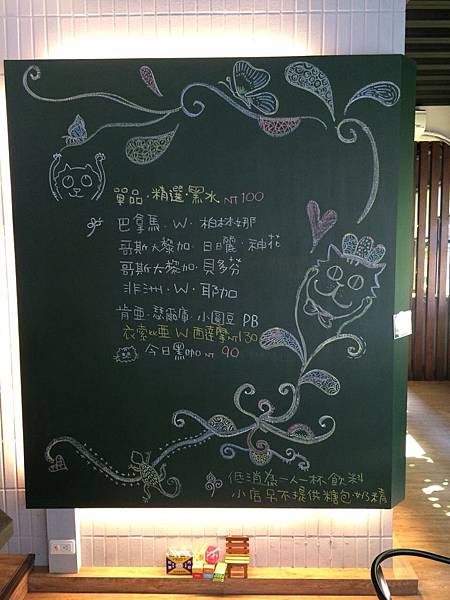 單品·精選·黑水 NT 100
巴拿馬·W·柏林娜
哥斯大黎加·日曬·神花
哥斯大黎加·貝多芬
非洲·W·耶加
肯亞·瑟爾·小圓豆 PB
衣索比亞 W 西達摩 NT 130
今日黑咖 NT 90
低消為一人一杯飲料
小店呆不提供糖包·奶精